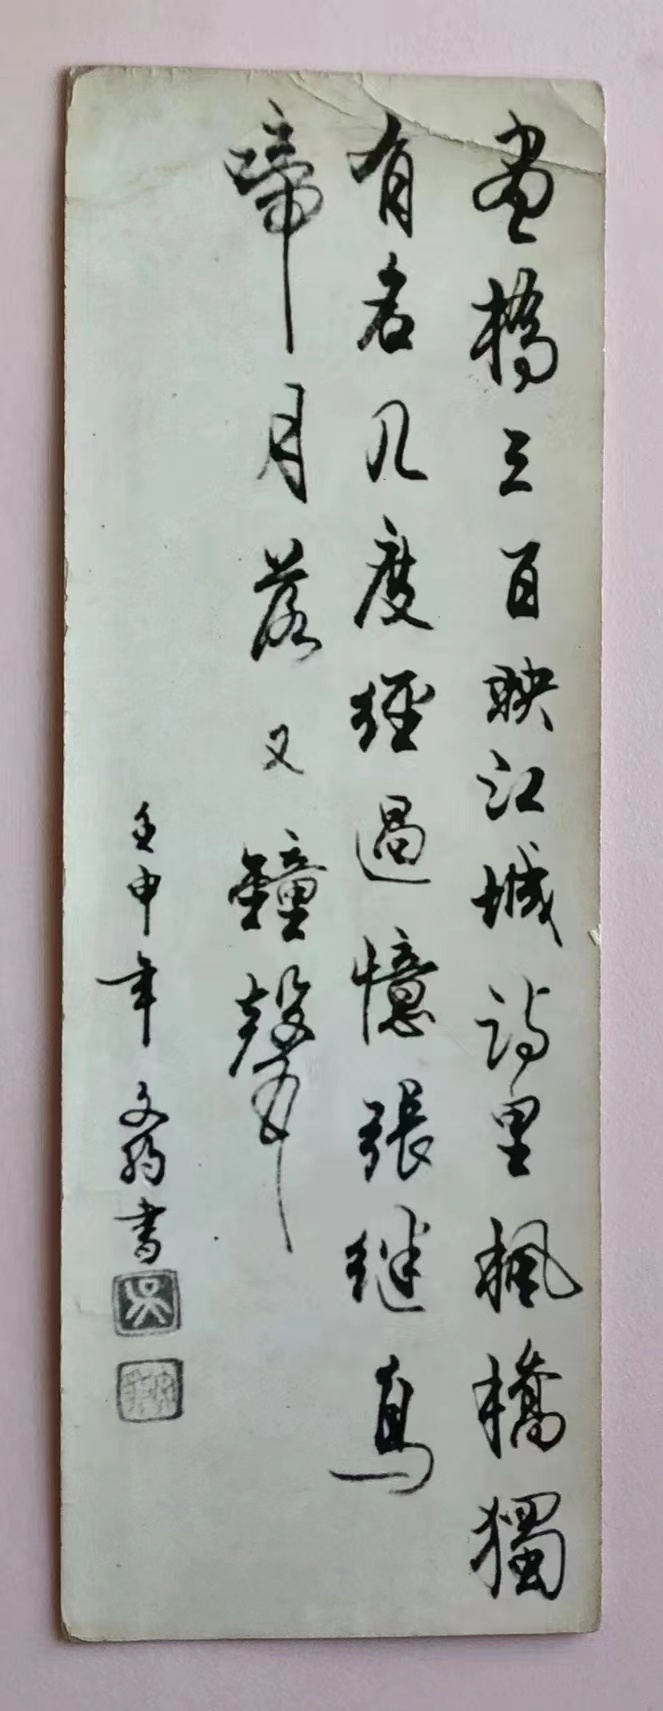 畫橋三百映江城詩里楓橋獨
有名几度經過憶張继烏
啼月落又鐘聲
壬申年文 書
吴